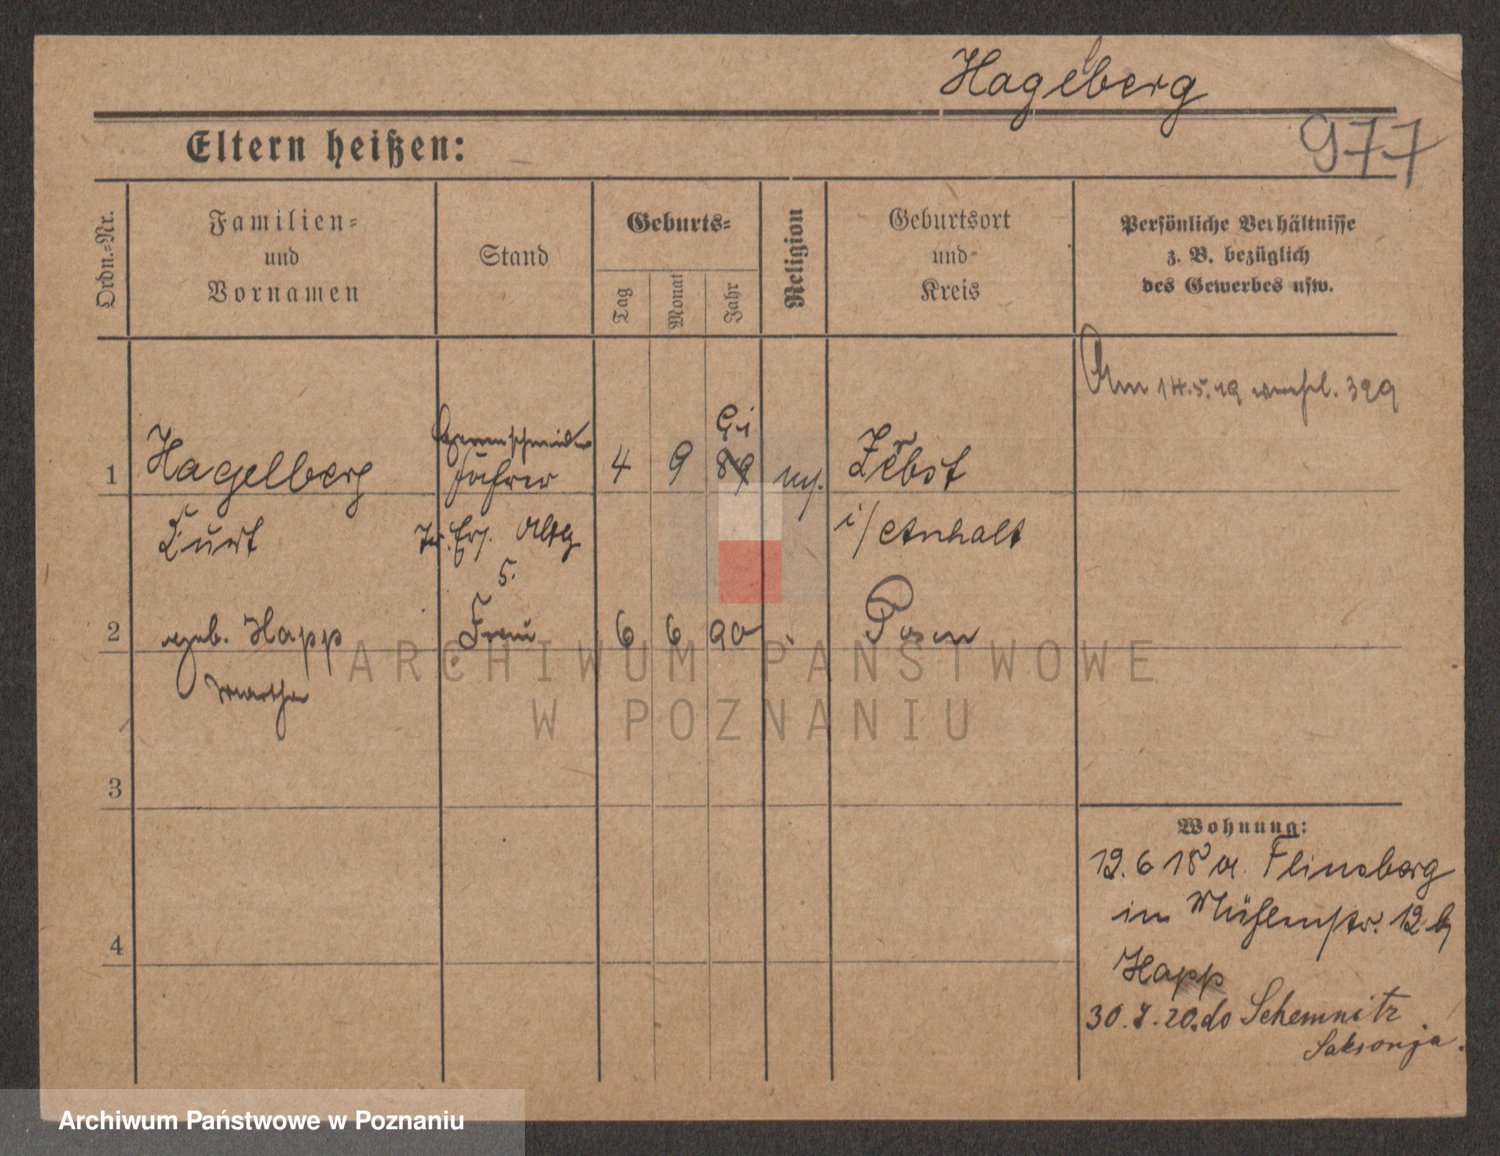 Hagelberg
977
Eltern heißen:
Ordn.-Nr.
Familien-
und
Vornamen
Stand
Geburts-
Tag
Monat
Jahr
Religion
Geburtsort
und
Kreis
Persönliche Verhältnisse
z. B. bezüglich
des Gewerbes usw.
Am 14.5.19 399
1
Hagelberg
führer
4
9
89
ev.
Zerbst
Curt
Ers. Abtlg
i/Anhalt
5.
2
geb. Happ
Frau
6
6
90
Posen
Martha
3
4
Wohnung:
12.6 18 a. Flinsberg
in Mühlenstr. 12 b
Happ
30.7.20. do Schemnitz
Saksonja.
ARCHIWUM PAŃSTWOWE
W POZNANIU
Archiwum Państwowe w Poznaniu